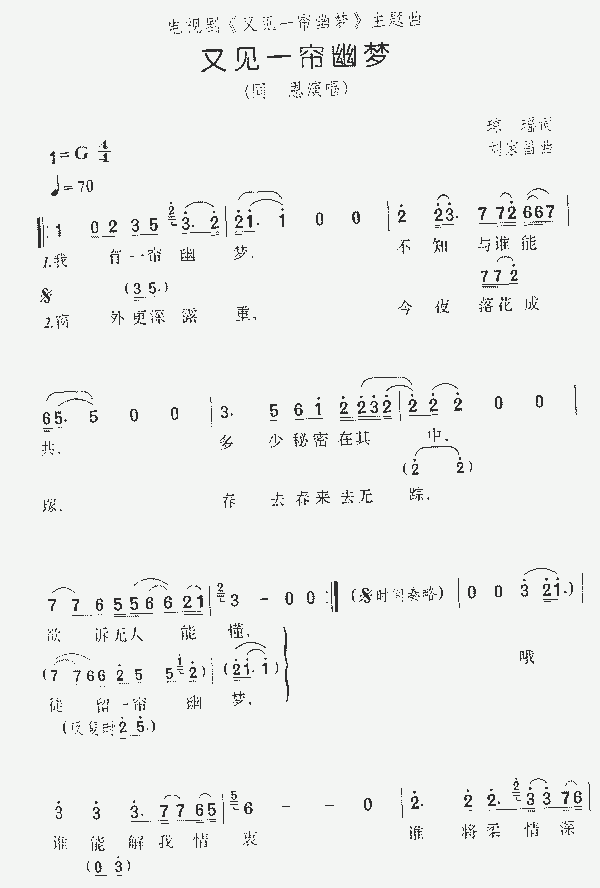 电视剧《又见一帘幽梦》主题曲
又见一帘幽梦
(同 恩演唱)
琼 瑶词
刘家昌曲
1=G 4/4
♩=70
1 0 2 3 5 2 3. 2 2 1. 1 0 0 2 2 3. 7 7 2 6 6 7
1.我 有一帘 幽 梦, 不 知 与谁能
𝄋 (3 5.) 7 7 2
2.窗 外更深 露 重, 今 夜 落花成
6 5. 5 0 0 3. 5 6 1 2 2 3 2 2 2 2 0 0
共, 多 少秘密在其 中,
(2 2)
冢, 春 去春来去无 踪,
7 7 6 5 5 5 6 6 2 1 2 3 - 0 0 (𝄋时间奏略) 0 0 3 2 1.)
欲 诉无人 能 懂, 哦
(7 7 6 6 2 5 5 1 2) (2 1. 1)
徒 留一帘 幽 梦,
(反复时 2 5.)
3 3 3. 7 7 6 5 5 6 - - 0 2. 2 2. 2 3 3 7 6
谁 能 解我情 衷 谁 将柔 情 深
(0 3)